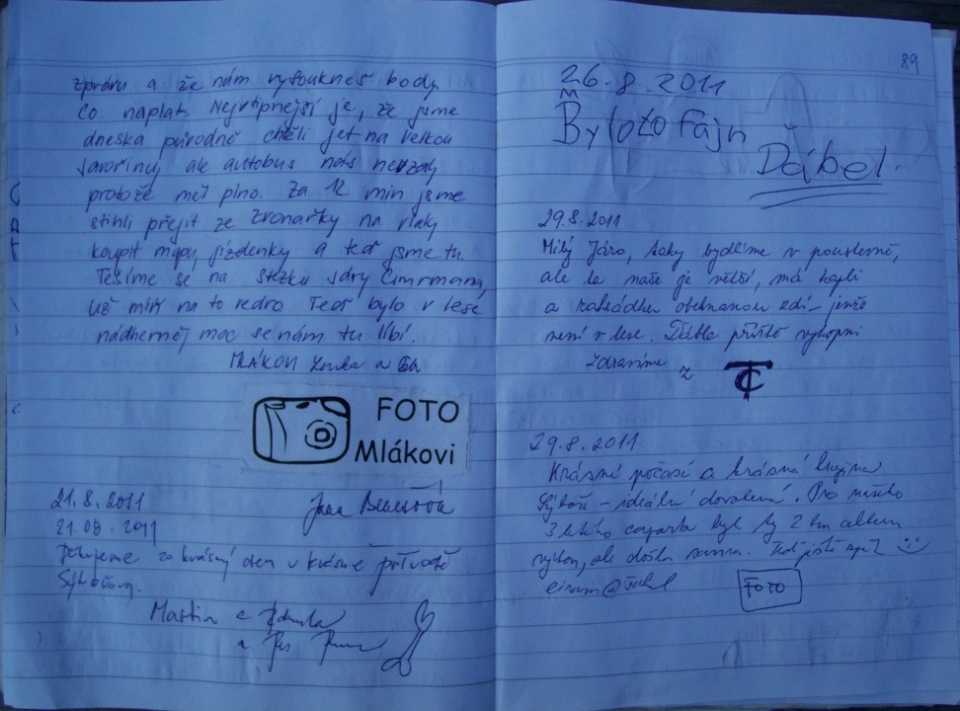 zprávu a že nám vyfoukneš body.
Co naplat. Nejvtipnější je, že jsme
dneska původně chtěli jet na Velkou
Javořinu, ale autobus nás nevzal,
protože měl plno. Za 12 min jsme
stihli přejít ze Zvonařky na vlaky
koupit mapu, jízdenky a teď jsme tu.
Těšíme se na stezku Járy Cimrmana,
Už mimi na to vedro. Teď bylo v lese
nádherně, moc se nám tu líbí.
MLÁKOVI Lenka a
FOTO
Mlákovi
21.8.2011 Jana Benešová
21.08.2011
Děkujeme za krásný den v krásné přírodě
Sýkořska.
Martin a Zdenula
a Pes
89
26.8.2011
Bylo to fajn
Ďábel.
29.8.2011
Milý Járo, taky bydlíme v poustevně,
ale ta naše je větší, má kapli
a zahrádku obehnanou zdí – jenže
není v lese. Ďábla příště vykopni
Zdravíme z TC
29.8.2011
Krásné počasí a krásná krajina
Sýkoř – ideální dovolená. Pro našeho
3 letého caparta byl by 2 km celkem
výkon, ale došla sama. Teď ještě zpět
FOTO